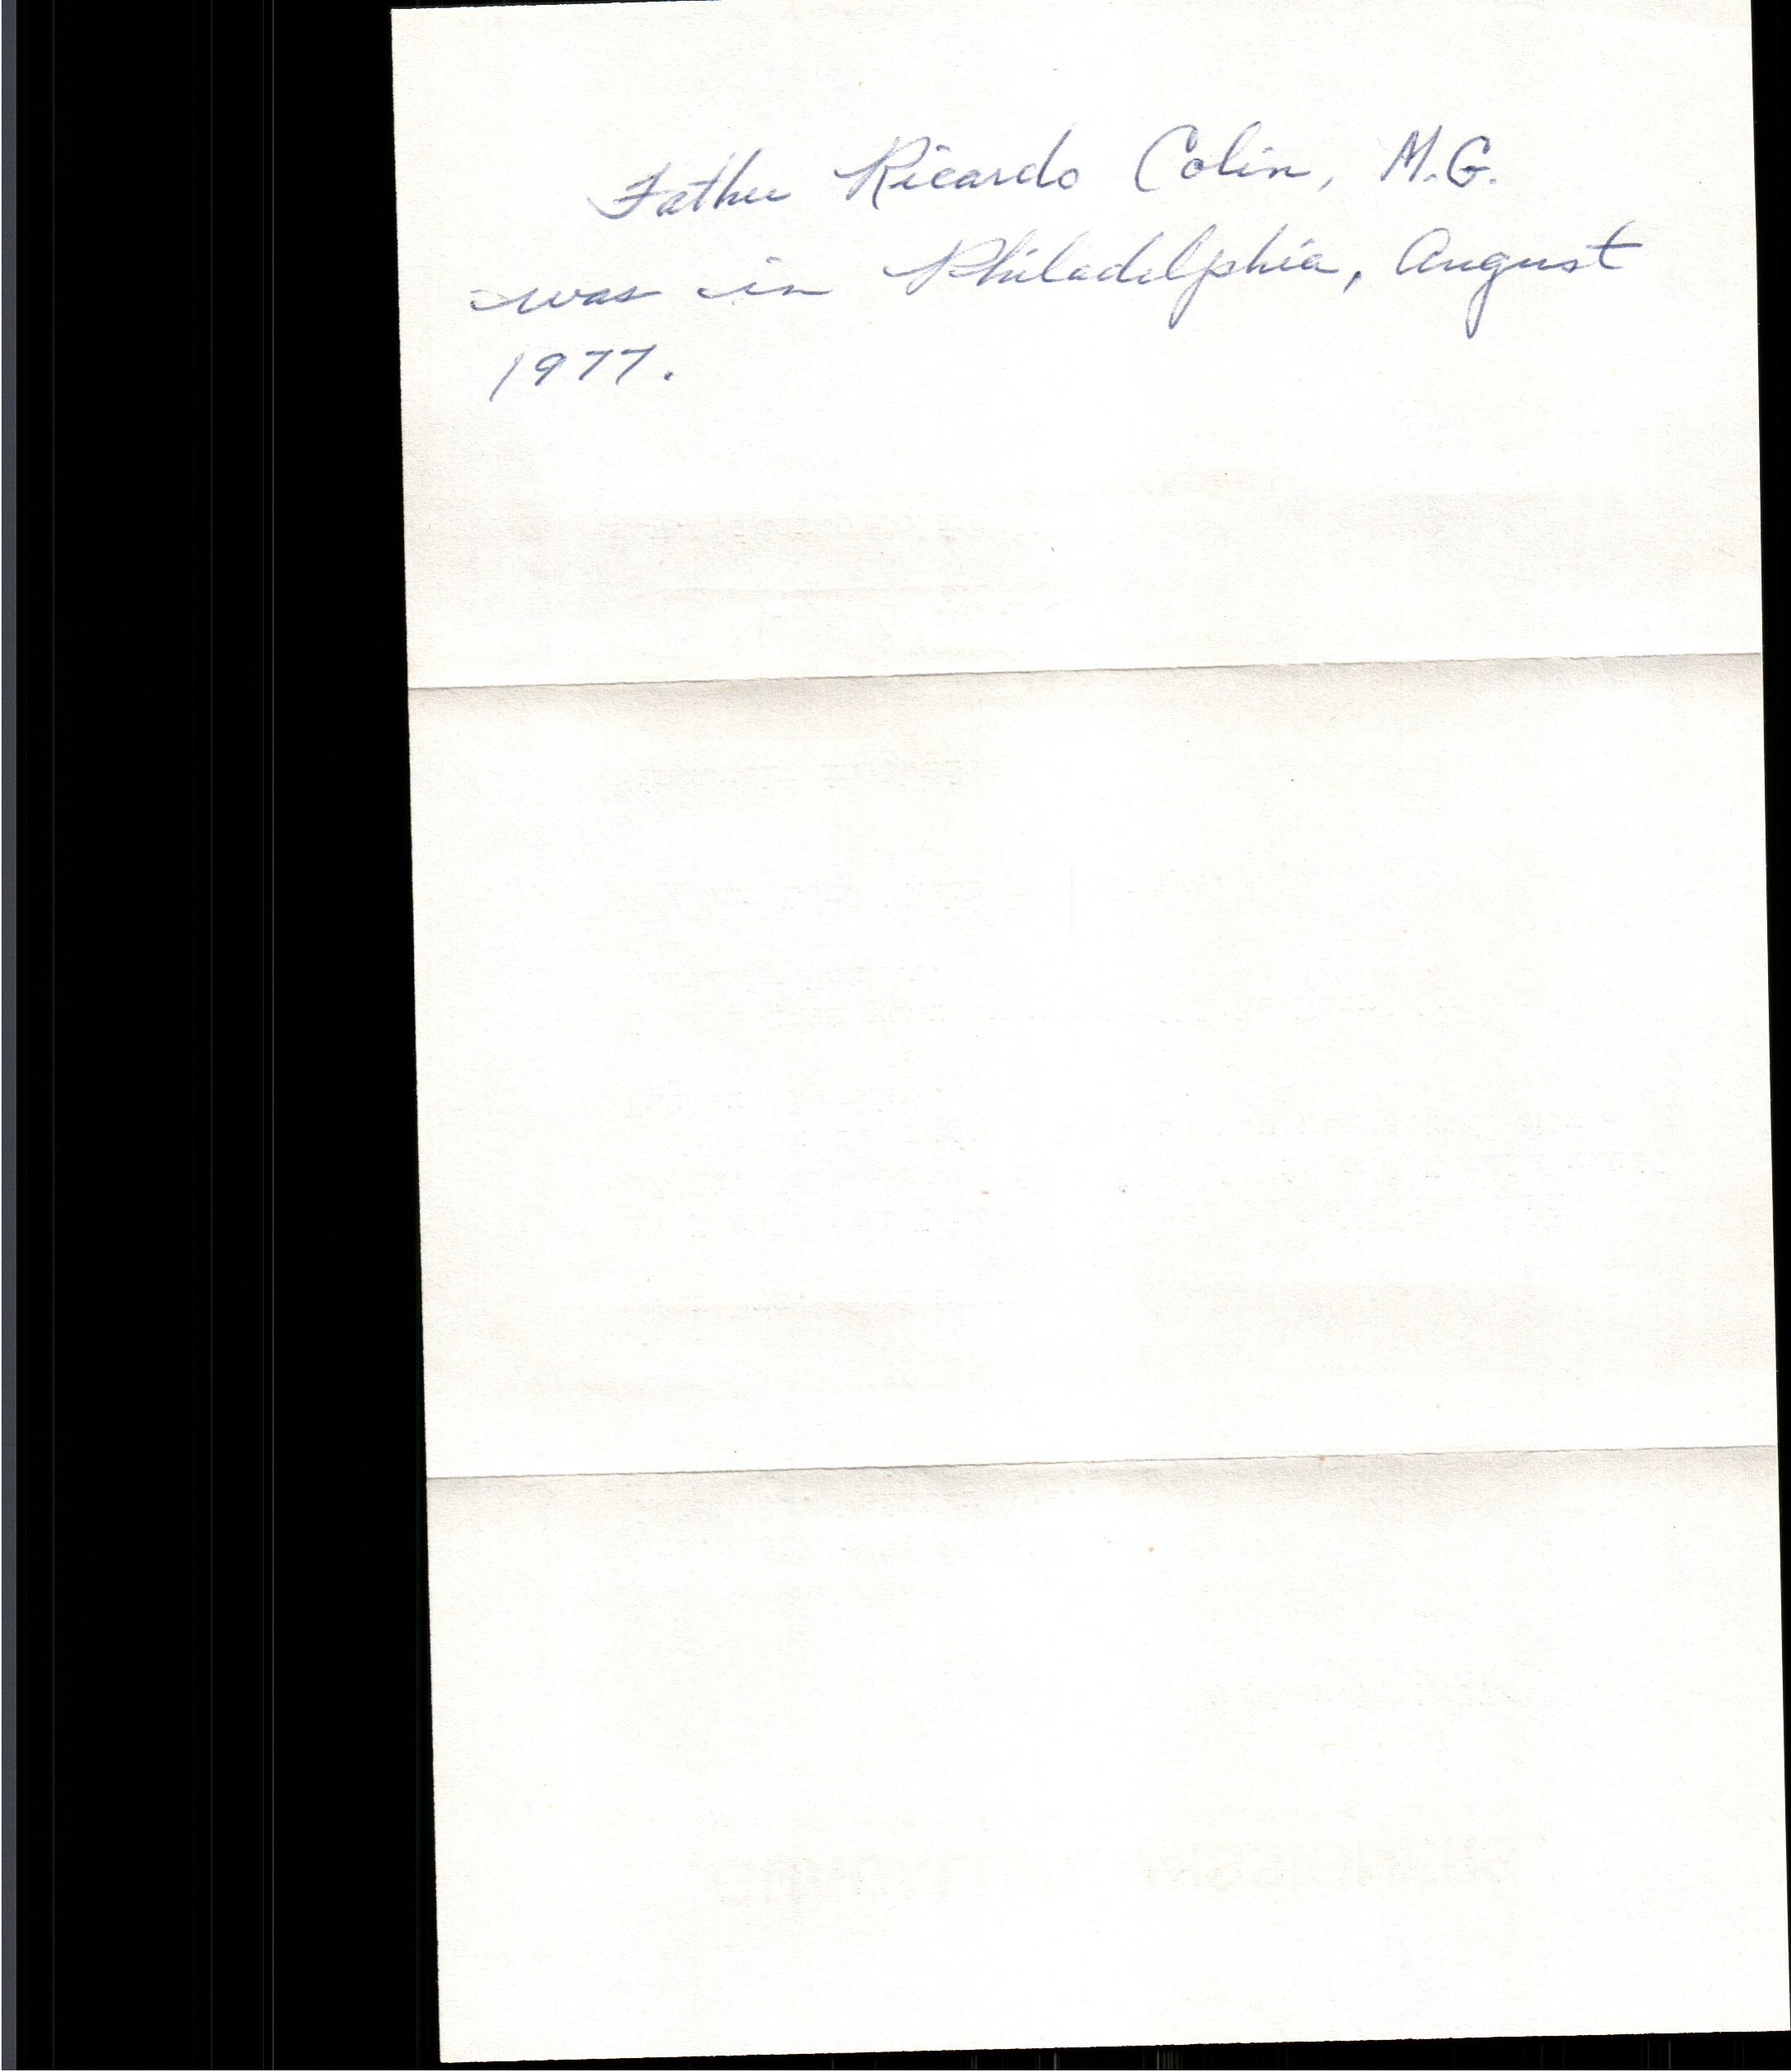 Father Ricardo Colin, M.G.
was in Philadelphia, August
1977.